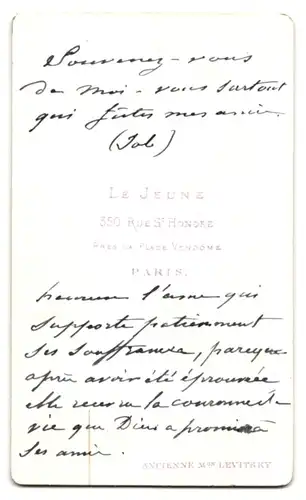 Souvenez-vous
de moi - vous surtout
qui fûtes mes amis.
(Job)
LE JEUNE
350 RUE ST HONORE
PRES LA PLACE VENDOME
PARIS.
heureuse l'ame qui
supporte patiemment
ses souffrances, parceque
après avoir été éprouvée
elle recevra la couronne de
vie que Dieu a promis à
ses amis.
ANCIENNE MON LEVITSKY